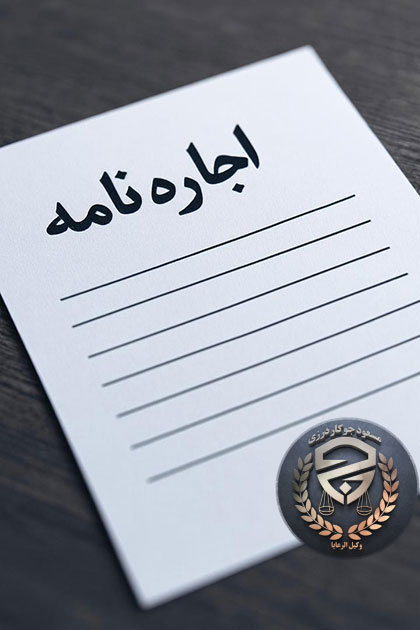 اجاره نامه
مسعود جوکار درزی
وکیل الرعایا